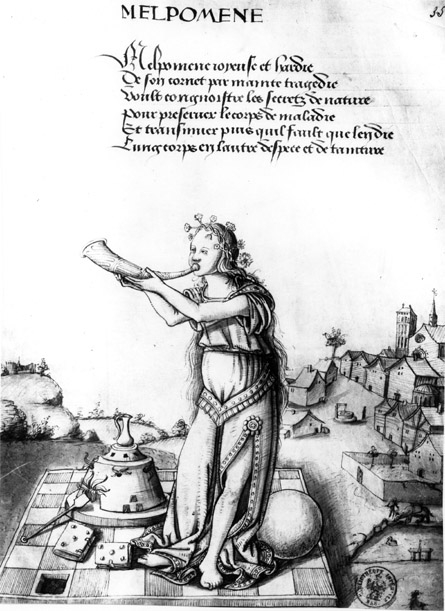 MELPOMENE
55
Melpomene ioyeuse et hardie
De son cornet par mainte tragedie
Voult congnoistre les secretz de nature
Pour preseruer le corps de maladie
Et transmuer puis quil fault que len die
Lung corps en lautre despece et de tainture